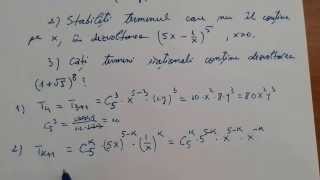 2) Stabiliți termenul care nu îl conține
pe x, în dezvoltarea (5x - 1/x)^5, x≠0.
3) Câți termeni iraționali conține dezvoltarea
(1+√5)^8?
1) T_4 = T_{3+1} = C_5^3 · x^{5-3} · (2y)^3 = 10 · x^2 · 8 · y^3 = 80x^2y^3
C_5^3 = = 10
2) T_{k+1} = C_5^k · (5x)^{5-k} · (1/x)^k = C_5^k · 5^{5-k} · x^{5-k} · x^{-k}